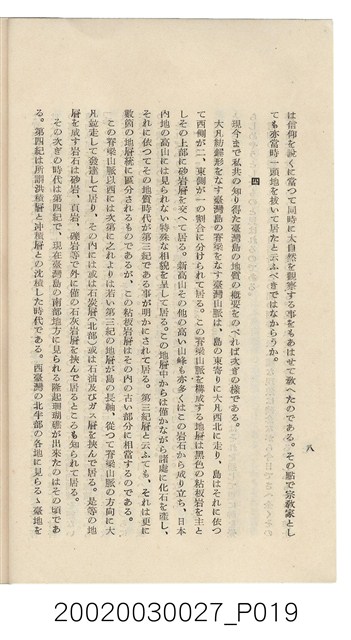 八
は信仰を說くに當つて同時に大自然を觀察する事をもあはせて敎へたのである。その點で宗敎家とし
ても亦當時一頭地を拔いて居たと云ふべきではなからうか。
四
現今まで私共の知り得た臺灣島の地質の槪要をのべれば次ぎの樣である。
大凡紡錘形をなす臺灣島の脊梁をなす臺灣山脈は、島の東寄りに大凡西北に走り、島はそれに依つ
て西側が二、東側が一の割合に分けられて居る。この脊梁山脈を構成する地層は黑色の粘板岩を主と
しその上部に砂岩層を交へて居る。新高山その他の高い山峰も亦多くはこの岩石から成り立ち、日本
內地の高山には見られない特殊な相貌を呈して居る。この地層中からは僅かながら諸處に化石を產し、
それに依つてその地質時代が第三紀である事が明かにされて居る。第三紀層と云ふても、それは更に
數箇の地層統に區分されるものであるが、この粘板岩層はその內の古い部分に相當するのである。
この脊梁山脈以西に次第に之れよりは若い第三紀の地層が島の長軸、從つて脊梁山脈の方向に大
凡竝走して發達して居り、その內には或は石炭層(北部)或は石油及びガス層を挾んで居る。是等の地
層を成す岩石は砂岩、頁岩、礫岩等で外に僅の石灰岩層を挾んで居るところも知られて居る。
その次ぎの時代は第四紀で、現在臺灣島の南部地方に見られる隆起珊瑚礁が出來たのはその頃であ
る。第四紀は所謂洪積層と沖積層との沈積した時代である。西臺灣の北半部の各地に見らるゝ臺地を
20020030027_P019